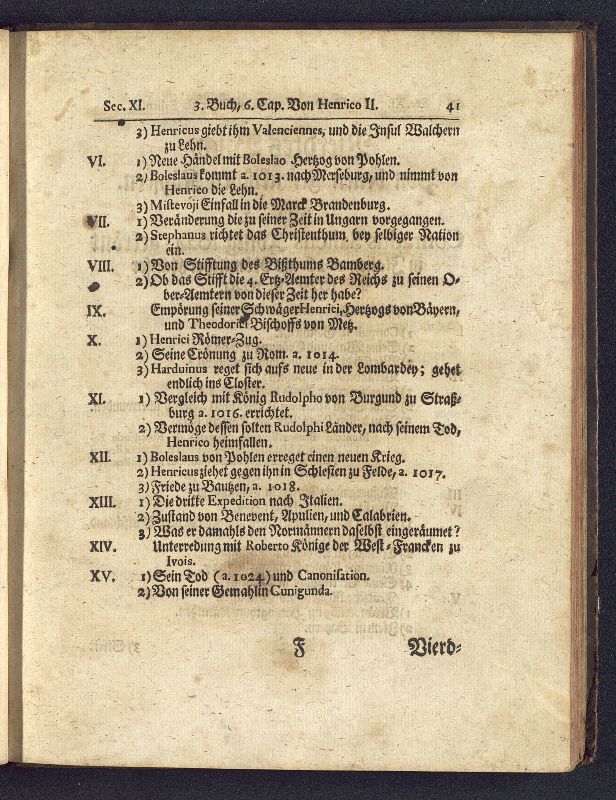 Sec. XI. 3. Buch, 6. Cap. Von Henrico II. 41
3) Henricus giebt ihm Valenciennes, und die Insul Walchern
zu Lehn.
VI. 1) Neue Händel mit Boleslao Hertzog von Pohlen.
2) Boleslaus kommt a. 1013. nach Merseburg, und nimmt von
Henrico die Lehn.
3) Mistevoji Einfall in die Marck Brandenburg.
VII. 1) Veränderung die zu seiner Zeit in Ungarn vorgegangen.
2) Stephanus richtet das Christenthum bey selbiger Nation
ein.
VIII. 1) Von Stifftung des Bißthums Bamberg.
2) Ob das Stifft die 4. Ertz-Aemter des Reichs zu seinen O-
ber-Aemtern von dieser Zeit her habe?
IX. Empörung seiner Schwäger Henrici, Hertzogs von Bäyern,
und Theodorici Bischoffs von Metz.
X. 1) Henrici Römer-Zug.
2) Seine Crönung zu Rom. a. 1014.
3) Harduinus reget sich aufs neue in der Lombardey; gehet
endlich ins Closter.
XI. 1) Vergleich mit König Rudolpho von Burgund zu Straß-
burg a. 1016. errichtet.
2) Vermöge dessen solten Rudolphi Länder, nach seinem Tod,
Henrico heimfallen.
XII. 1) Boleslaus von Pohlen erreget einen neuen Krieg.
2) Henricus ziehet gegen ihn in Schlesien zu Felde, a. 1017.
3) Friede zu Bautzen, a. 1018.
XIII. 1) Die dritte Expedition nach Italien.
2) Zustand von Benevent, Apulien, und Calabrien.
3) Was er damahls den Normännern daselbst eingeräumet?
XIV. Unterredung mit Roberto Könige der West-Francken zu
Ivois.
XV. 1) Sein Tod (a. 1024) und Canonisation.
2) Von seiner Gemahlin Cunigunda.
F Vierd-